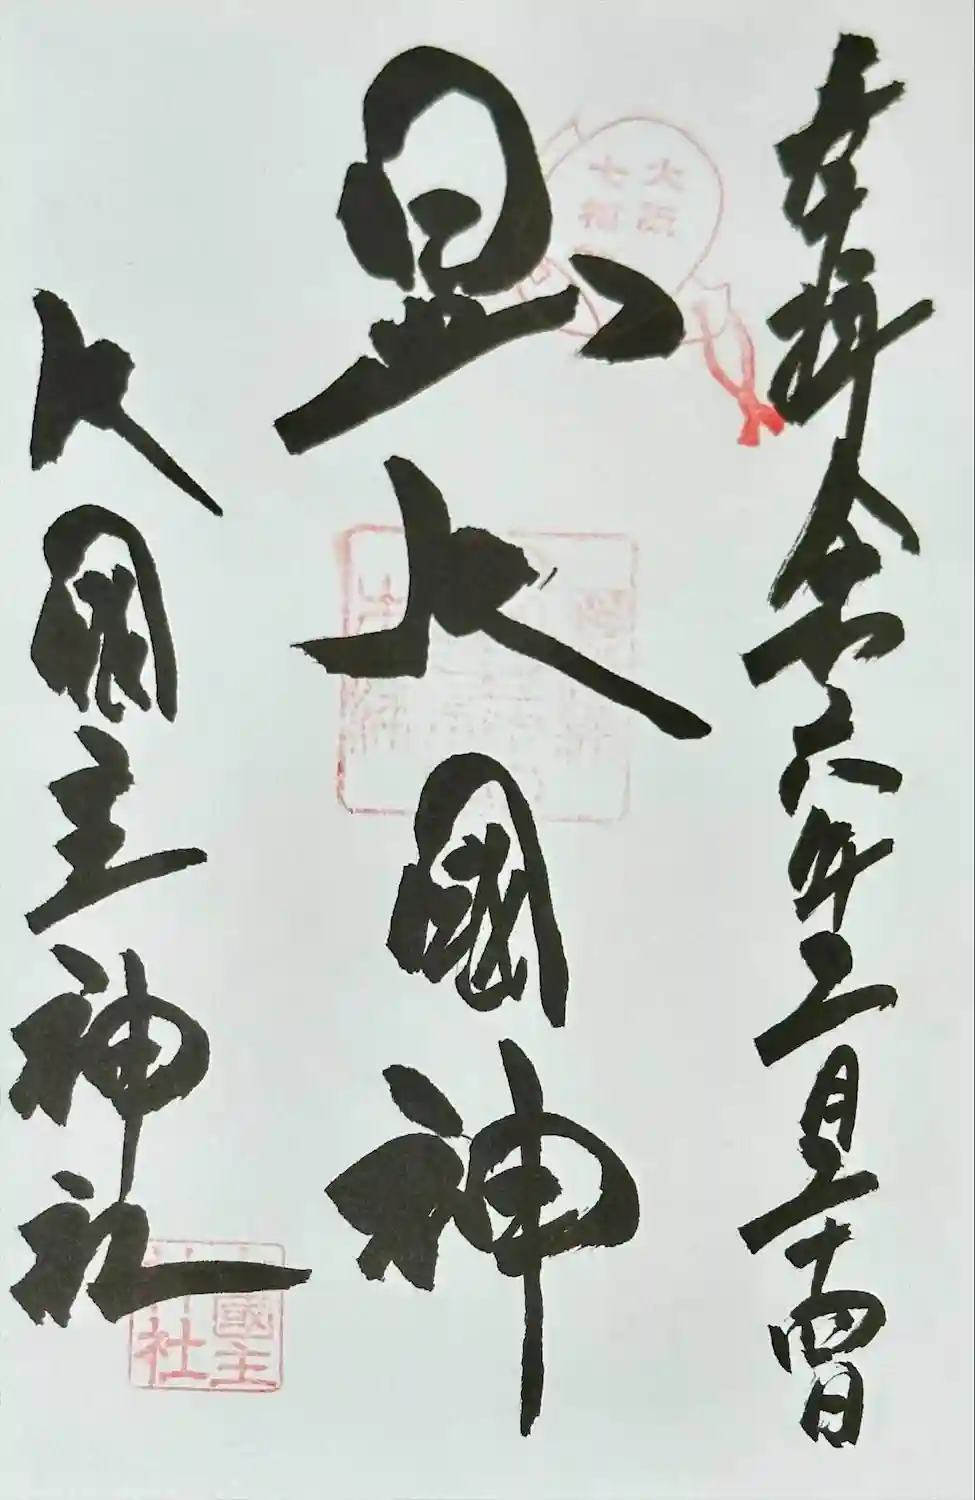 奉拝 令和六年二月二十四日
大阪
七福
日出大國神
大国主神社
大國主
神社